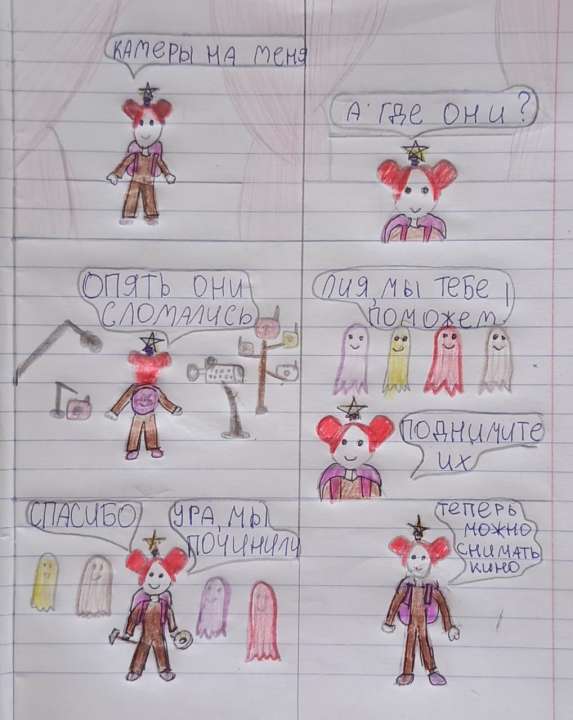 КАМЕРЫ НА МЕНЯ
А ГДЕ ОНИ?
ОПЯТЬ ОНИ
СЛОМАЛИСЬ
ЛИЯ, МЫ ТЕБЕ
ПОМОЖЕМ!
ПОДНИМИТЕ
ИХ
СПАСИБО
УРА, МЫ
ПОЧИНИЛИ
ТЕПЕРЬ
МОЖНО
СНИМАТЬ
КИНО